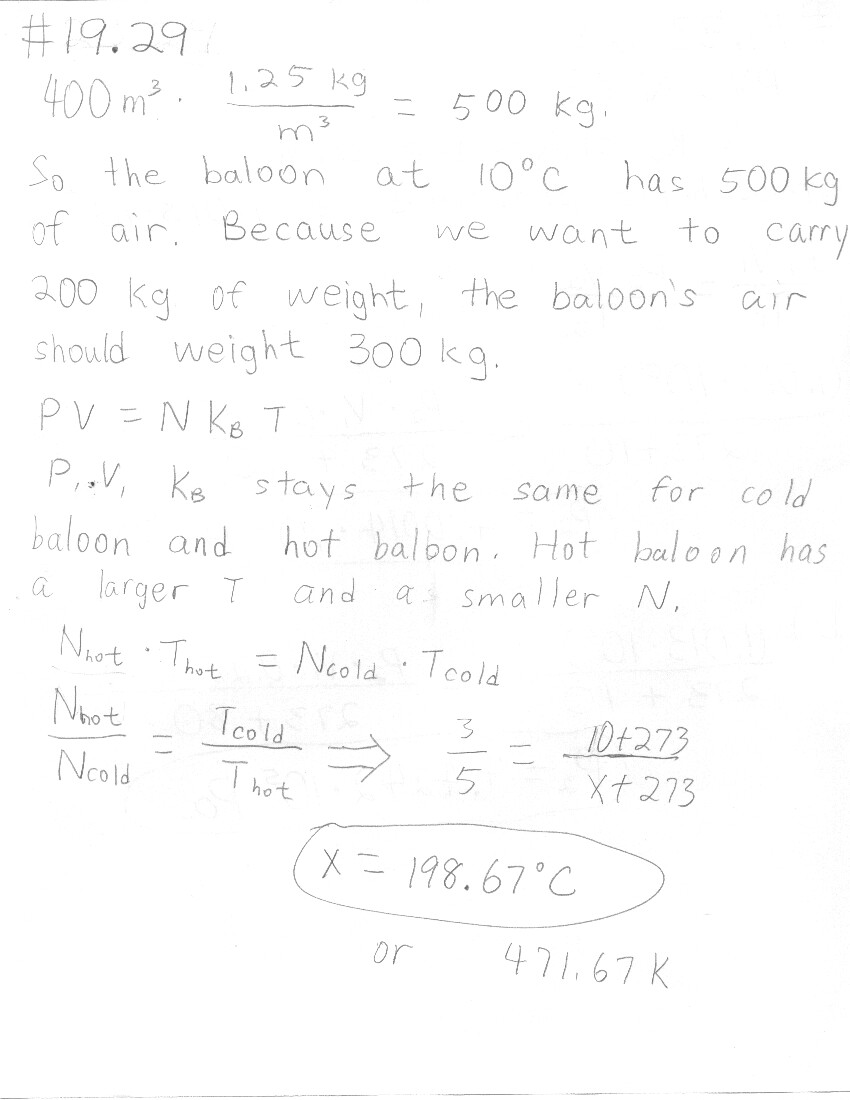 #19.29
400 m³ · 1.25 kg / m³ = 500 kg.
So the baloon at 10°C has 500 kg
of air. Because we want to carry
200 kg of weight, the baloon's air
should weight 300 kg.
PV = N K_B T
P, V, K_B stays the same for cold
baloon and hot baloon. Hot baloon has
a larger T and a smaller N.
N_hot · T_hot = N_cold · T_cold
N_hot / N_cold = T_cold / T_hot ⇒ 3/5 = (10+273) / (x+273)
x = 198.67°C
or 471.67 K